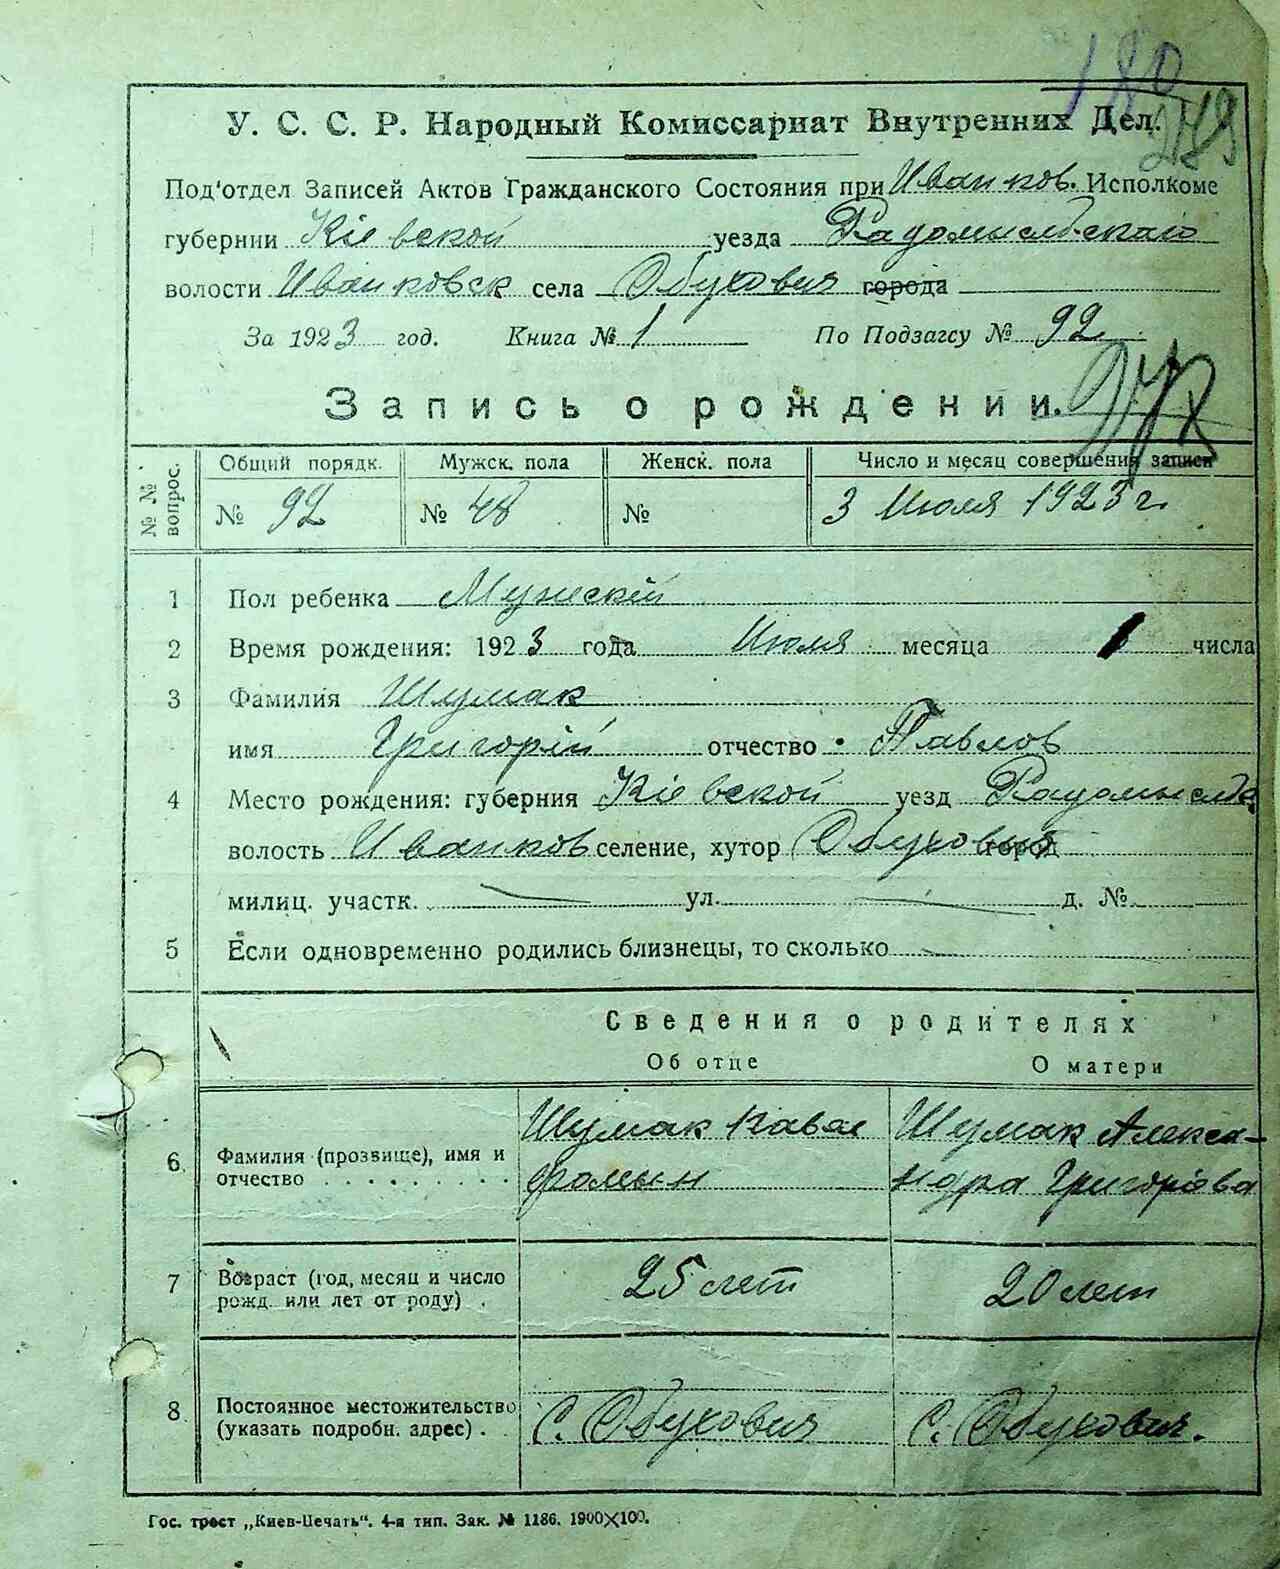 180
У. С. С. Р. Народный Комиссариат Внутренних Дел.
Под'отдел Записей Актов Гражданского Состояния при Иванков. Исполкоме
губернии Кіевской уезда Радомысльскаго
волости Иванковск села Обуховичи города
За 1923 год. Книга № 1 По Подзагсу № 92
Запись о рождении.
№ № вопрос. Общий порядк. Мужск. пола Женск. пола Число и месяц совершения записи
№ 92 № 48 № 3 Июля 1923 г.
1 Пол ребенка Мужскій
2 Время рождения: 1923 года Июля месяца 1 числа
3 Фамилия Шумак
имя Григорій отчество Павлов
4 Место рождения: губерния Кіевской уезд Радомысльс
волость Иванков селение, хутор Обуховичи город
милиц. участк. — ул. — д. № —
5 Если одновременно родились близнецы, то сколько —
Сведения о родителях
Об отце О матери
6 Фамилия (прозвище), имя и отчество . . . . . . . . .
Шумак Павел
Фомин
Шумак Алекса-
ндра Григоріева
7 Возраст (год, месяц и число
рожд. или лет от роду) .
25 лет 20 лет
8 Постоянное местожительство
(указать подробн. адрес) .
С. Обуховичи С. Обуховичи.
Гос. трест „Киев-Печать“. 4-я тип. Зак. № 1186. 1900×100.